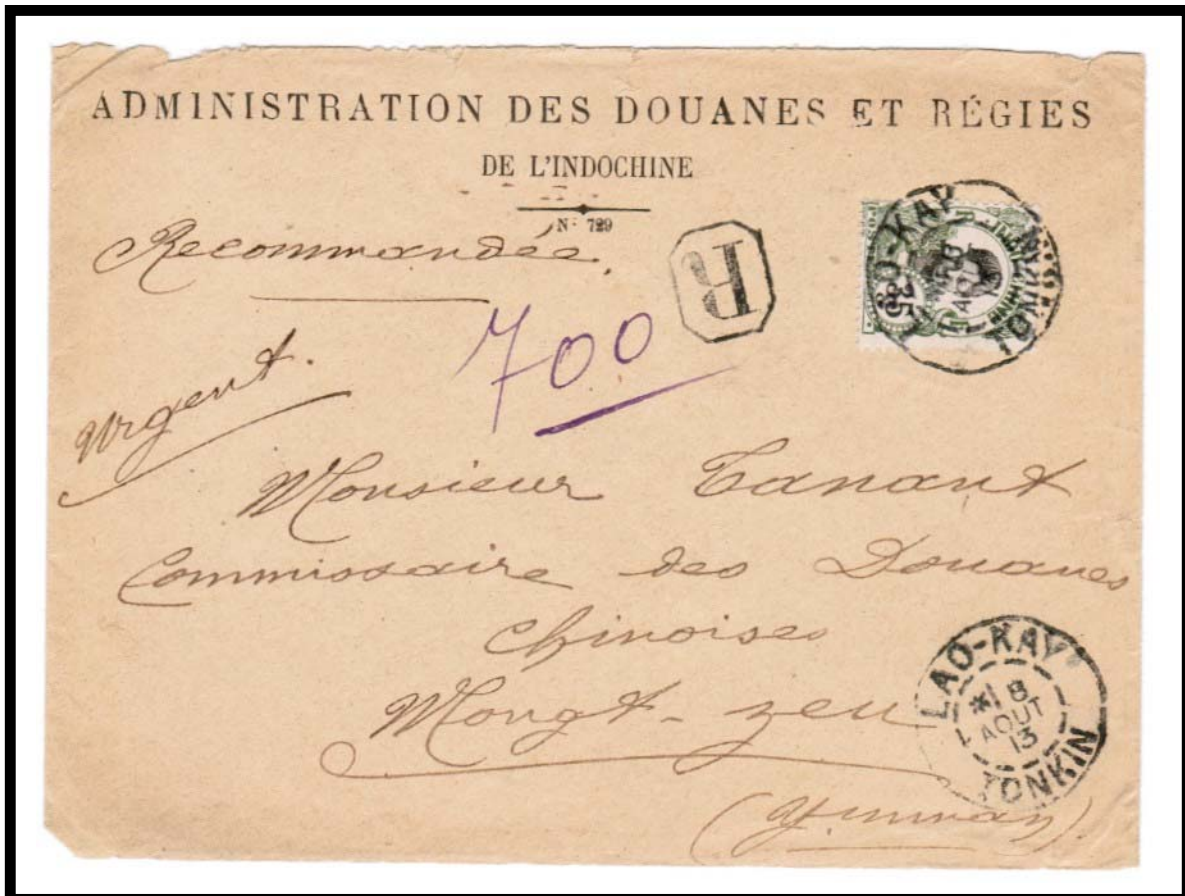 ADMINISTRATION DES DOUANES ET RÉGIES
DE L'INDOCHINE
N° 729
Recommandée.
R
700
Urgent.
LAO-KAY
TONKIN
35
Monsieur Tanant
Commissaire des Douanes
Chinoises
Mongt-zeu
(Yunnan).
LAO-KAY
8
AOUT
13
TONKIN